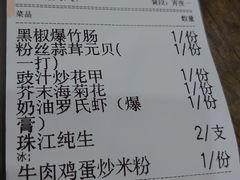 菜品 数量
黑椒爆竹肠 1/份
粉丝蒜茸元贝( 1/份
一打)
豉汁炒花甲 1/份
芥末海菊花 1/份
奶油罗氏虾（爆 1/份
膏）
珠江纯生 2/支
冰;
牛肉鸡蛋炒米粉 1/份